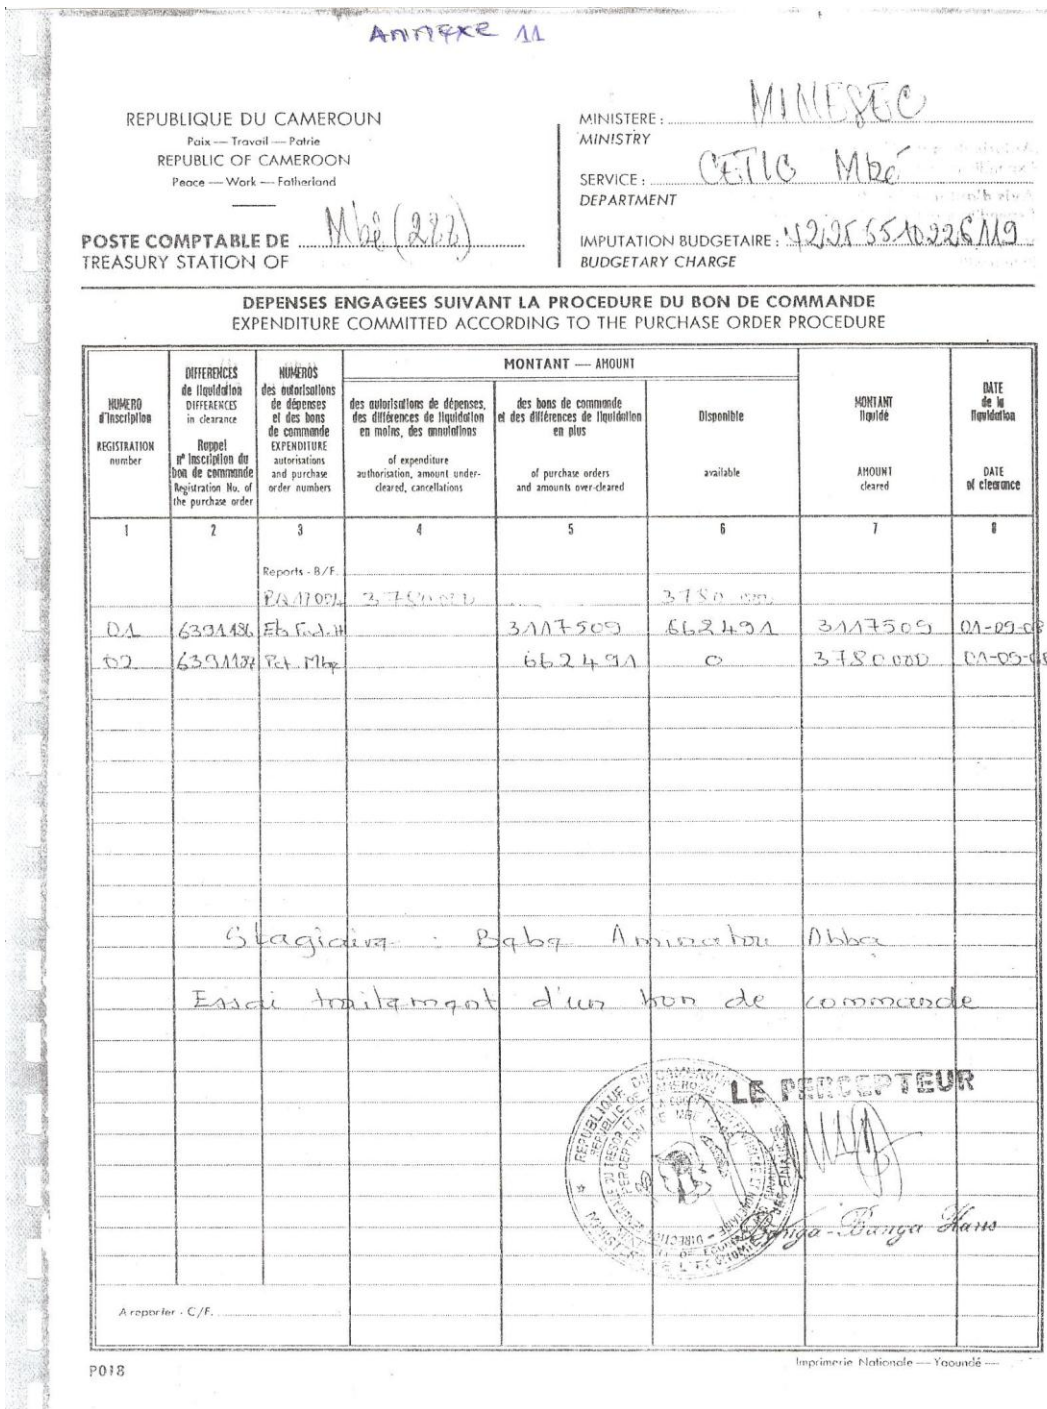 ANNEXE 11
REPUBLIQUE DU CAMEROUN
Paix — Travail — Patrie
REPUBLIC OF CAMEROON
Peace — Work — Fatherland
POSTE COMPTABLE DE Mbé (288)
TREASURY STATION OF
MINISTERE : MINESEC
MINISTRY
SERVICE : CETIC Mbé
DEPARTMENT
IMPUTATION BUDGETAIRE :
BUDGETARY CHARGE
DEPENSES ENGAGEES SUIVANT LA PROCEDURE DU BON DE COMMANDE
EXPENDITURE COMMITTED ACCORDING TO THE PURCHASE ORDER PROCEDURE
NUMERO
d'inscription
REGISTRATION
number
DIFFERENCES
de liquidation
DIFFERENCES
in clearance
Rappel
n° inscription du
bon de commande
Registration No. of
the purchase order
NUMEROS
des autorisations
de dépenses
et des bons
de commande
EXPENDITURE
autorisations
and purchase
order numbers
MONTANT — AMOUNT
des autorisations de dépenses,
des différences de liquidation
en moins, des annulations
of expenditure
authorisation, amount under-
cleared, cancellations
des bons de commande
et des différences de liquidation
en plus
of purchase orders
and amounts over-cleared
Disponible
available
MONTANT
liquidé
AMOUNT
cleared
DATE
de la
liquidation
DATE
of clearance
1 2 3 4 5 6 7 8
Reports - B/F.
3780 000 3780 000
01 6391186 Ets 3117509 662491 3117509 01-09-08
02 6391187 Pct Mbe 662491 0 3780000 01-09-08
Stagiaire : Baba Aminatou Abba
Essai traitement d'un bon de commande
LE PERCEPTEUR
Banga-Banga Hans
A reporter - C/F.
P018
Imprimerie Nationale — Yaoundé —